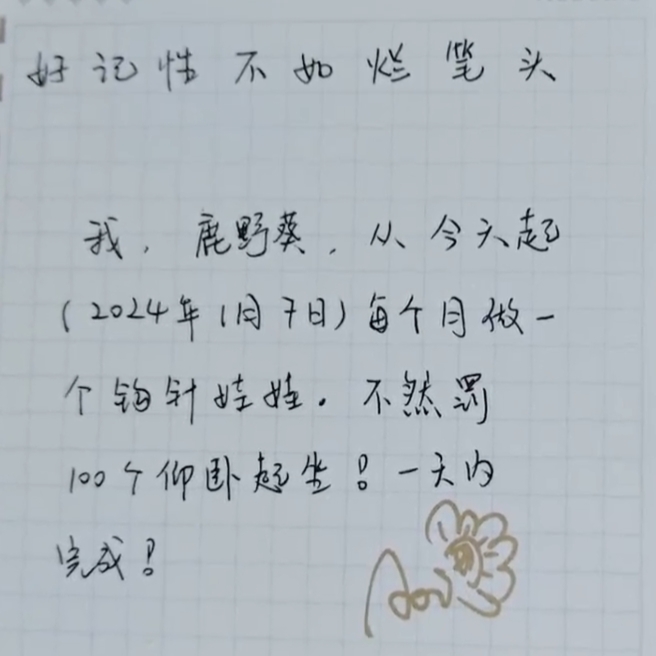 好记性不如烂笔头
我，鹿野葵，从今天起
(2024年1月7日)每个月做一
个钩针娃娃。不然罚
100个仰卧起坐！一天内
完成！
Aoi